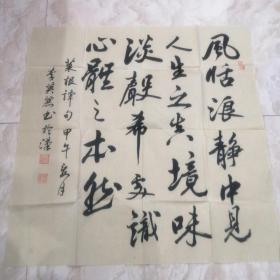 風恬浪静中見
人生之真境味
淡聲希處識
心體之本然
菜根譚句 甲午
李英